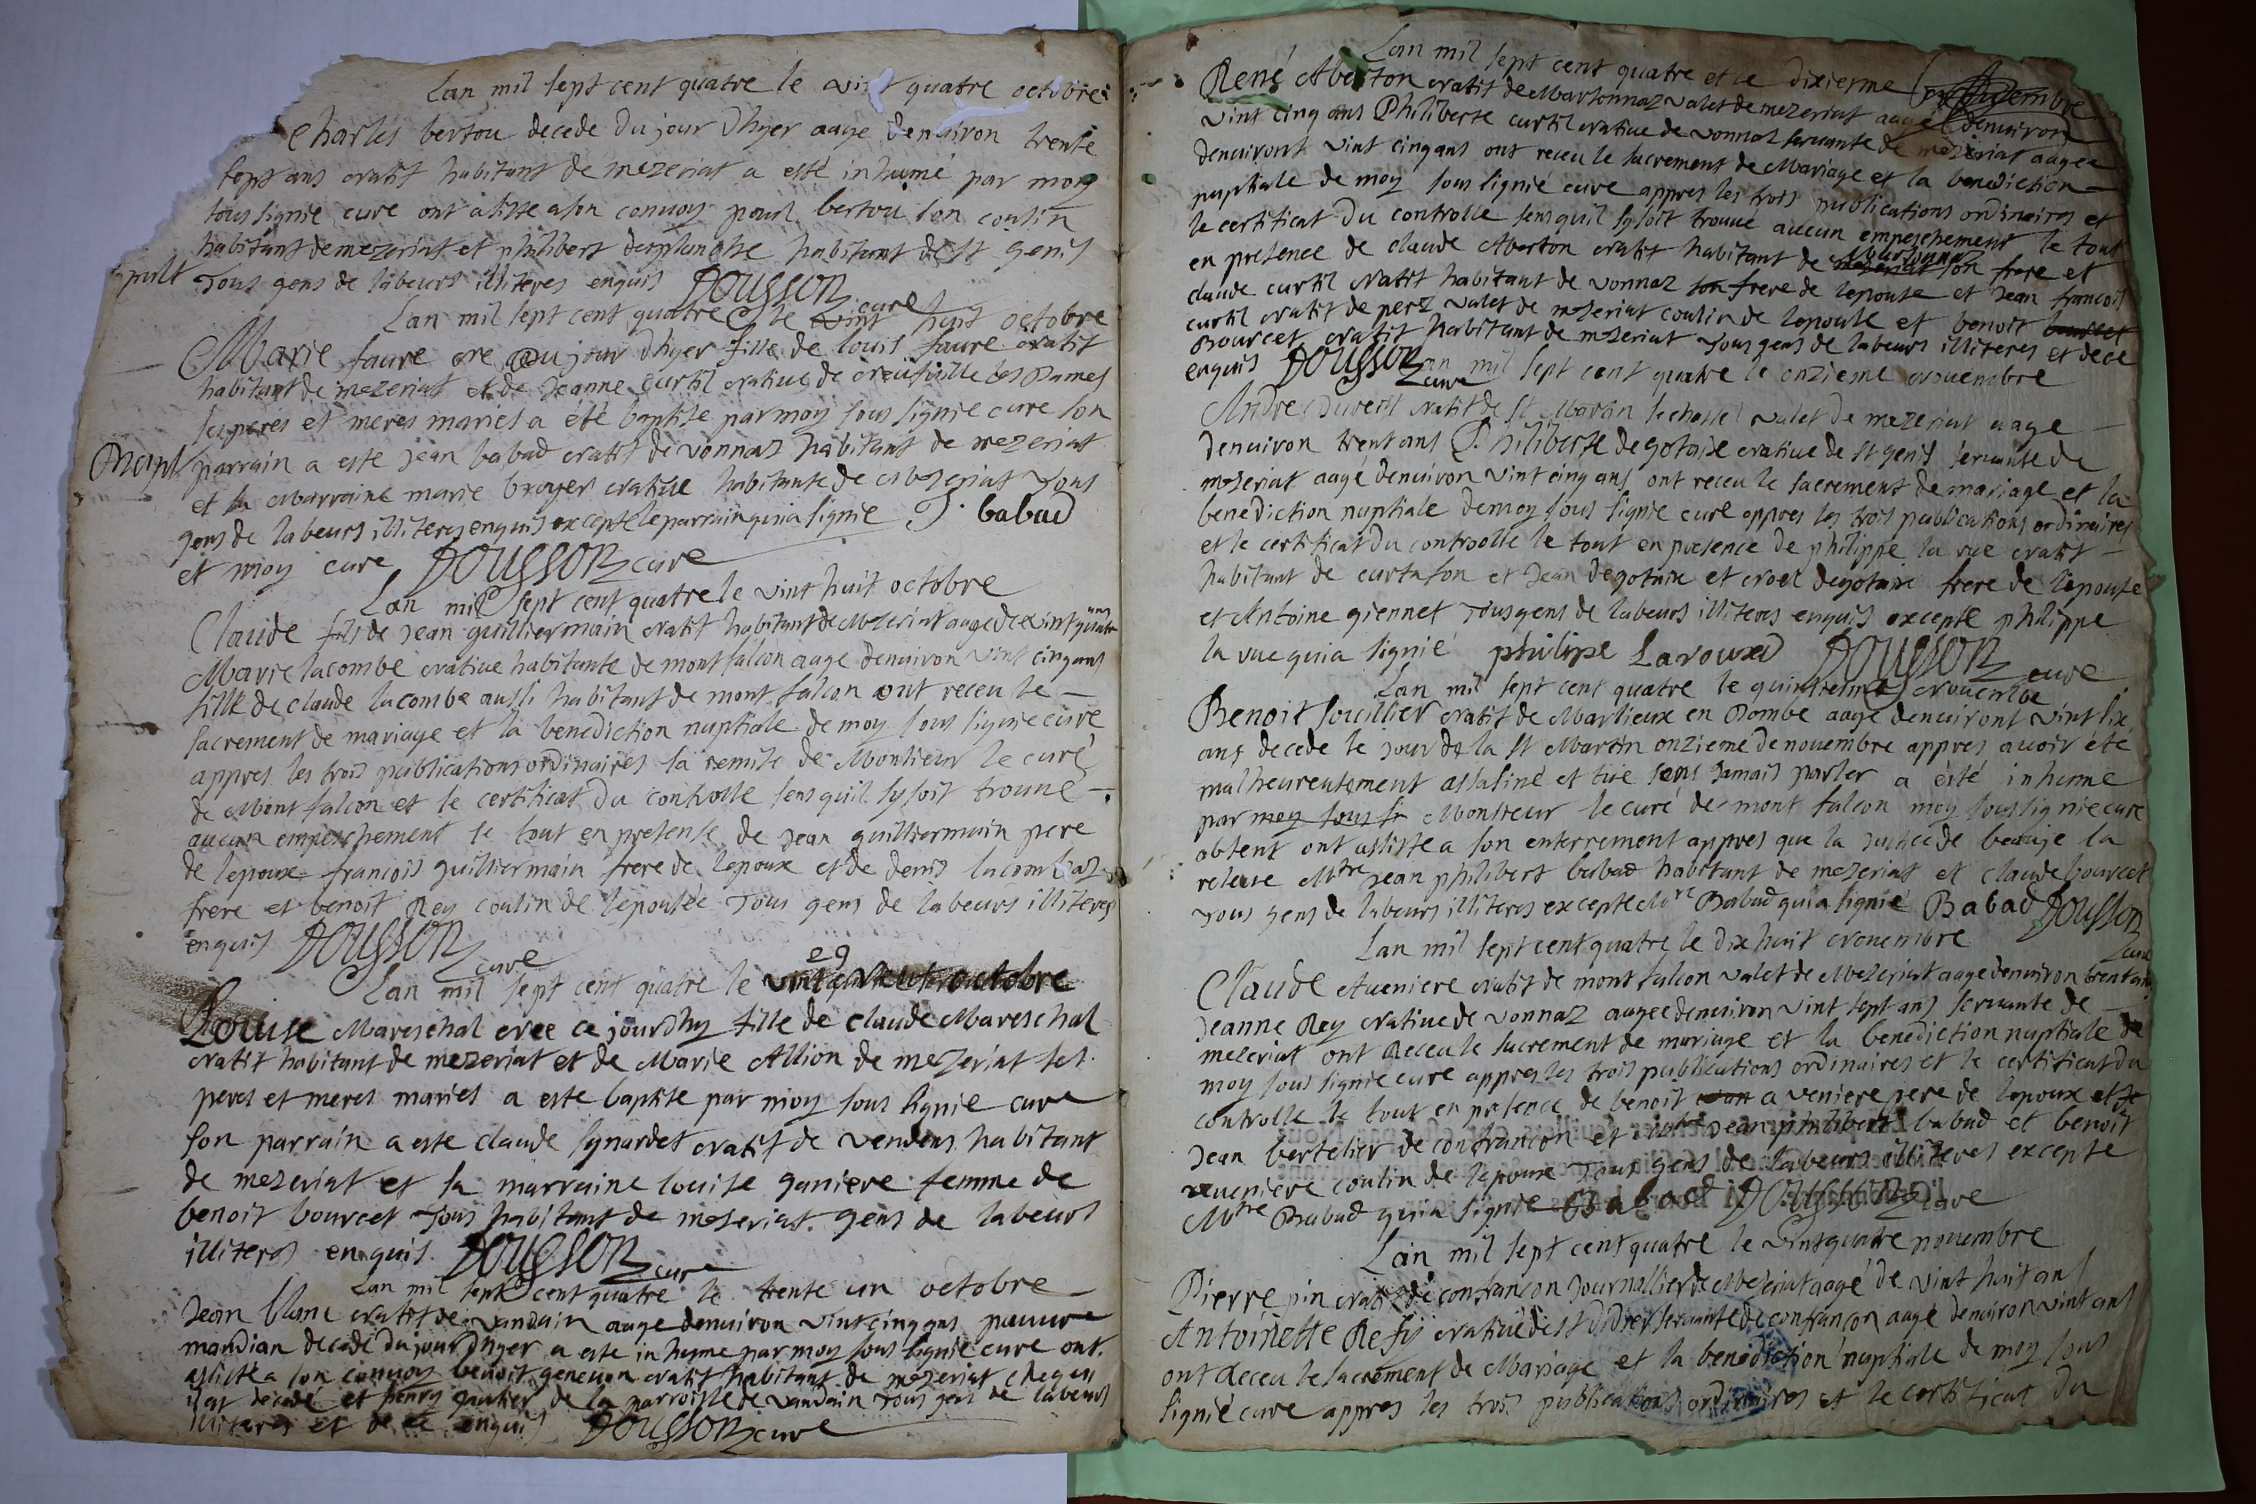 Lan mil sept cent quatre le vint quatre octobre
Charles bertou decede du jour dhyer aage denuiron trente
sept ans natif habitant de mezeriat a esté inhumé par moy
soussignie cure ont asiste a son convoy pour bertou son cousin
habitant de mezeriat et philibert desplanche habitant de st genis
Tous gens de labeurs illiteres enquis DOUSSON cure
Lan mil sept cent quatre le vint sept octobre
Marie faure nee du jour dhyer fille de louis faure natif
habitant de mezeriat et de Jeanne Curtil natiue de
ses peres et meres mariés a eté baptise par moy sous signie cure son
parrain a este jean babad natif de vonnaz habitant de mezeriat
et sa Marraine marie broyer natiue habitante de Mezeriat Tous
gens de labeurs illiteres enquis excepté le parrain qui a signie J. babad
et moy cure DOUSSON cure
Lan mil sept cent quatre le vint huit octobre
Claude fils de Jean guilliermain natif habitant de Mezeriat aage de vint quatre ans
Marie lacombe natiue habitante de mont falcon aage denuiron vint cinq ans
fille de claude lacombe aussi habitant de mont falcon ont receu le
sacrement de mariage et la benediction nuptiale de moy sous signie cure
appres les trois publications ordinaires la remise de Monsieur le curé
de Mont falcon et le certificat du controlle sens quil sy soit trouué
aucun empeschement le tout en presense de Jean guilliermain pere
de lepoux francois guilliermain frere de lepoux et de denis lacombaz
frere et benoit Rey cousin de lepousée Tous gens de labeurs illiteres
enquis DOUSSON cure
Lan mil sept cent quatre le 29 octobre
Louise Mareschal nee ce jourdhuy fille de claude Mareschal
natif habitant de mezeriat et de Marie Allion de mezeriat ses
peres et meres mariés a este baptise par moy sous signie cure
son parrain a este claude natif de vendens habitant
de mezeriat et sa marraine louise ganiere femme de
benoit bourcet Tous habitant de mezeriat gens de labeurs
illiteres enquis DOUSSON cure
Lan mil sept cent quatre le trente un octobre
Jean blanc natif de vandain aage denuiron vint cinq ans pauure
mandian decedé du jour dhyer a este inhume par moy sous signie cure ont
assisté a son convoy benoit geneuon natif habitant de mezeriat
il est decedé et henry gautier de la parroisse de vandain Tous gens de labeurs
illiteres et de ce enquis DOUSSON cure
Lan mil sept cent quatre et le dixiesme
René Aberton natif de Marsonnaz valet de mezeriat aagé denuiron
vint cinq ans Philiberte curtil natiue de vonnaz seruante de mezeriat aagee
denuiront vint cinq ans ont receu le sacrement de Mariage et la benediction
nuptiale de moy sous signié cure appres les trois publications ordinaires et
le certificat du controlle sens quil sy soit trouué aucun empeschement le tout
en presence de claude Aberton natif habitant de Marsonnaz son frere et
claude curtil natif habitant de vonnaz frere de lepouse et Jean francois
curtil natif de perz valet de mezeriat cousin de lepouse et benoit
Bourcet natif habitant de mezeriat Tous gens de labeurs illiteres et de ce
enquis DOUSSON cure
Lan mil sept cent quatre le onzieme nouembre
Andre natif de st Martin valet de mezeriat aage
denuiron trent ans Philiberte degotaxe natiue de st genis seruante de
mezeriat aagé denuiron vint cinq ans ont receu le sacrement de mariage et la
benediction nuptiale de moy sous signie cure appres les trois publications ordinaires
et le certificat du controolle le tout en presence de philippe la rue natif
habitant de curtafon et Jean degotaxe et noel degotaxe frere de lepouse
et Antoine giennet Tous gens de labeurs illiteres enquis excepté philippe
la rue qui a signié philipe DOUSSON cure
Lan mil sept cent quatre le quinzieme nouembre
Benoit souillier natif de Marlieux en Dombe aagé denuiront vint six
ans decede le jour de la st Martin onzieme de nouembre appres auoir été
malheureusement assasiné et tué sens Jamais parler a été inhume
par moy sous si Monsieur le curé de mont falcon moy sous signie cure
absent ont assiste a son enterrement appres que la justice de beauje la
releue Mtre Jean philibert babad habitant de mezeriat et claude bourcet
Tous gens de labeurs illiteres excepté Mtre Babad qui a signié Babad DOUSSON cure
Lan mil sept cent quatre le dix huit nouembre
Claude Aueniere natif de mont falcon valet de Mezeriat aage denuiron trent ans
Jeanne Rey natiue de vonnaz aagee denuiron vint sept ans seruante de
mezeriat ont Receu le sacrement de mariage et la benediction nuptiale de
moy sous signie cure appres les trois publications ordinaires et le certificat du
controlle le tout en presence de benoit a veniere pere de lepoux et de
Jean bertelier de confrancon et Mtre Jean philibert babad et benoit
aueniere cousin de lepoux Tous gens de labeurs illiteres excepte
Mtre Babad qui a signie Babad DOUSSON cure
Lan mil sept cent quatre le vint quatre nouembre
Pierre pin natif de confrancon Journallier de Mezeriat aagé de vint huit ans
Antoinette Refis natiue de st didier seruante de confrancon aagé denuiron vint ans
ont Receu le sacrement de Mariage et la benediction nuptiale de moy sous
signié cure appres les trois publications ordinaires et le certificat du